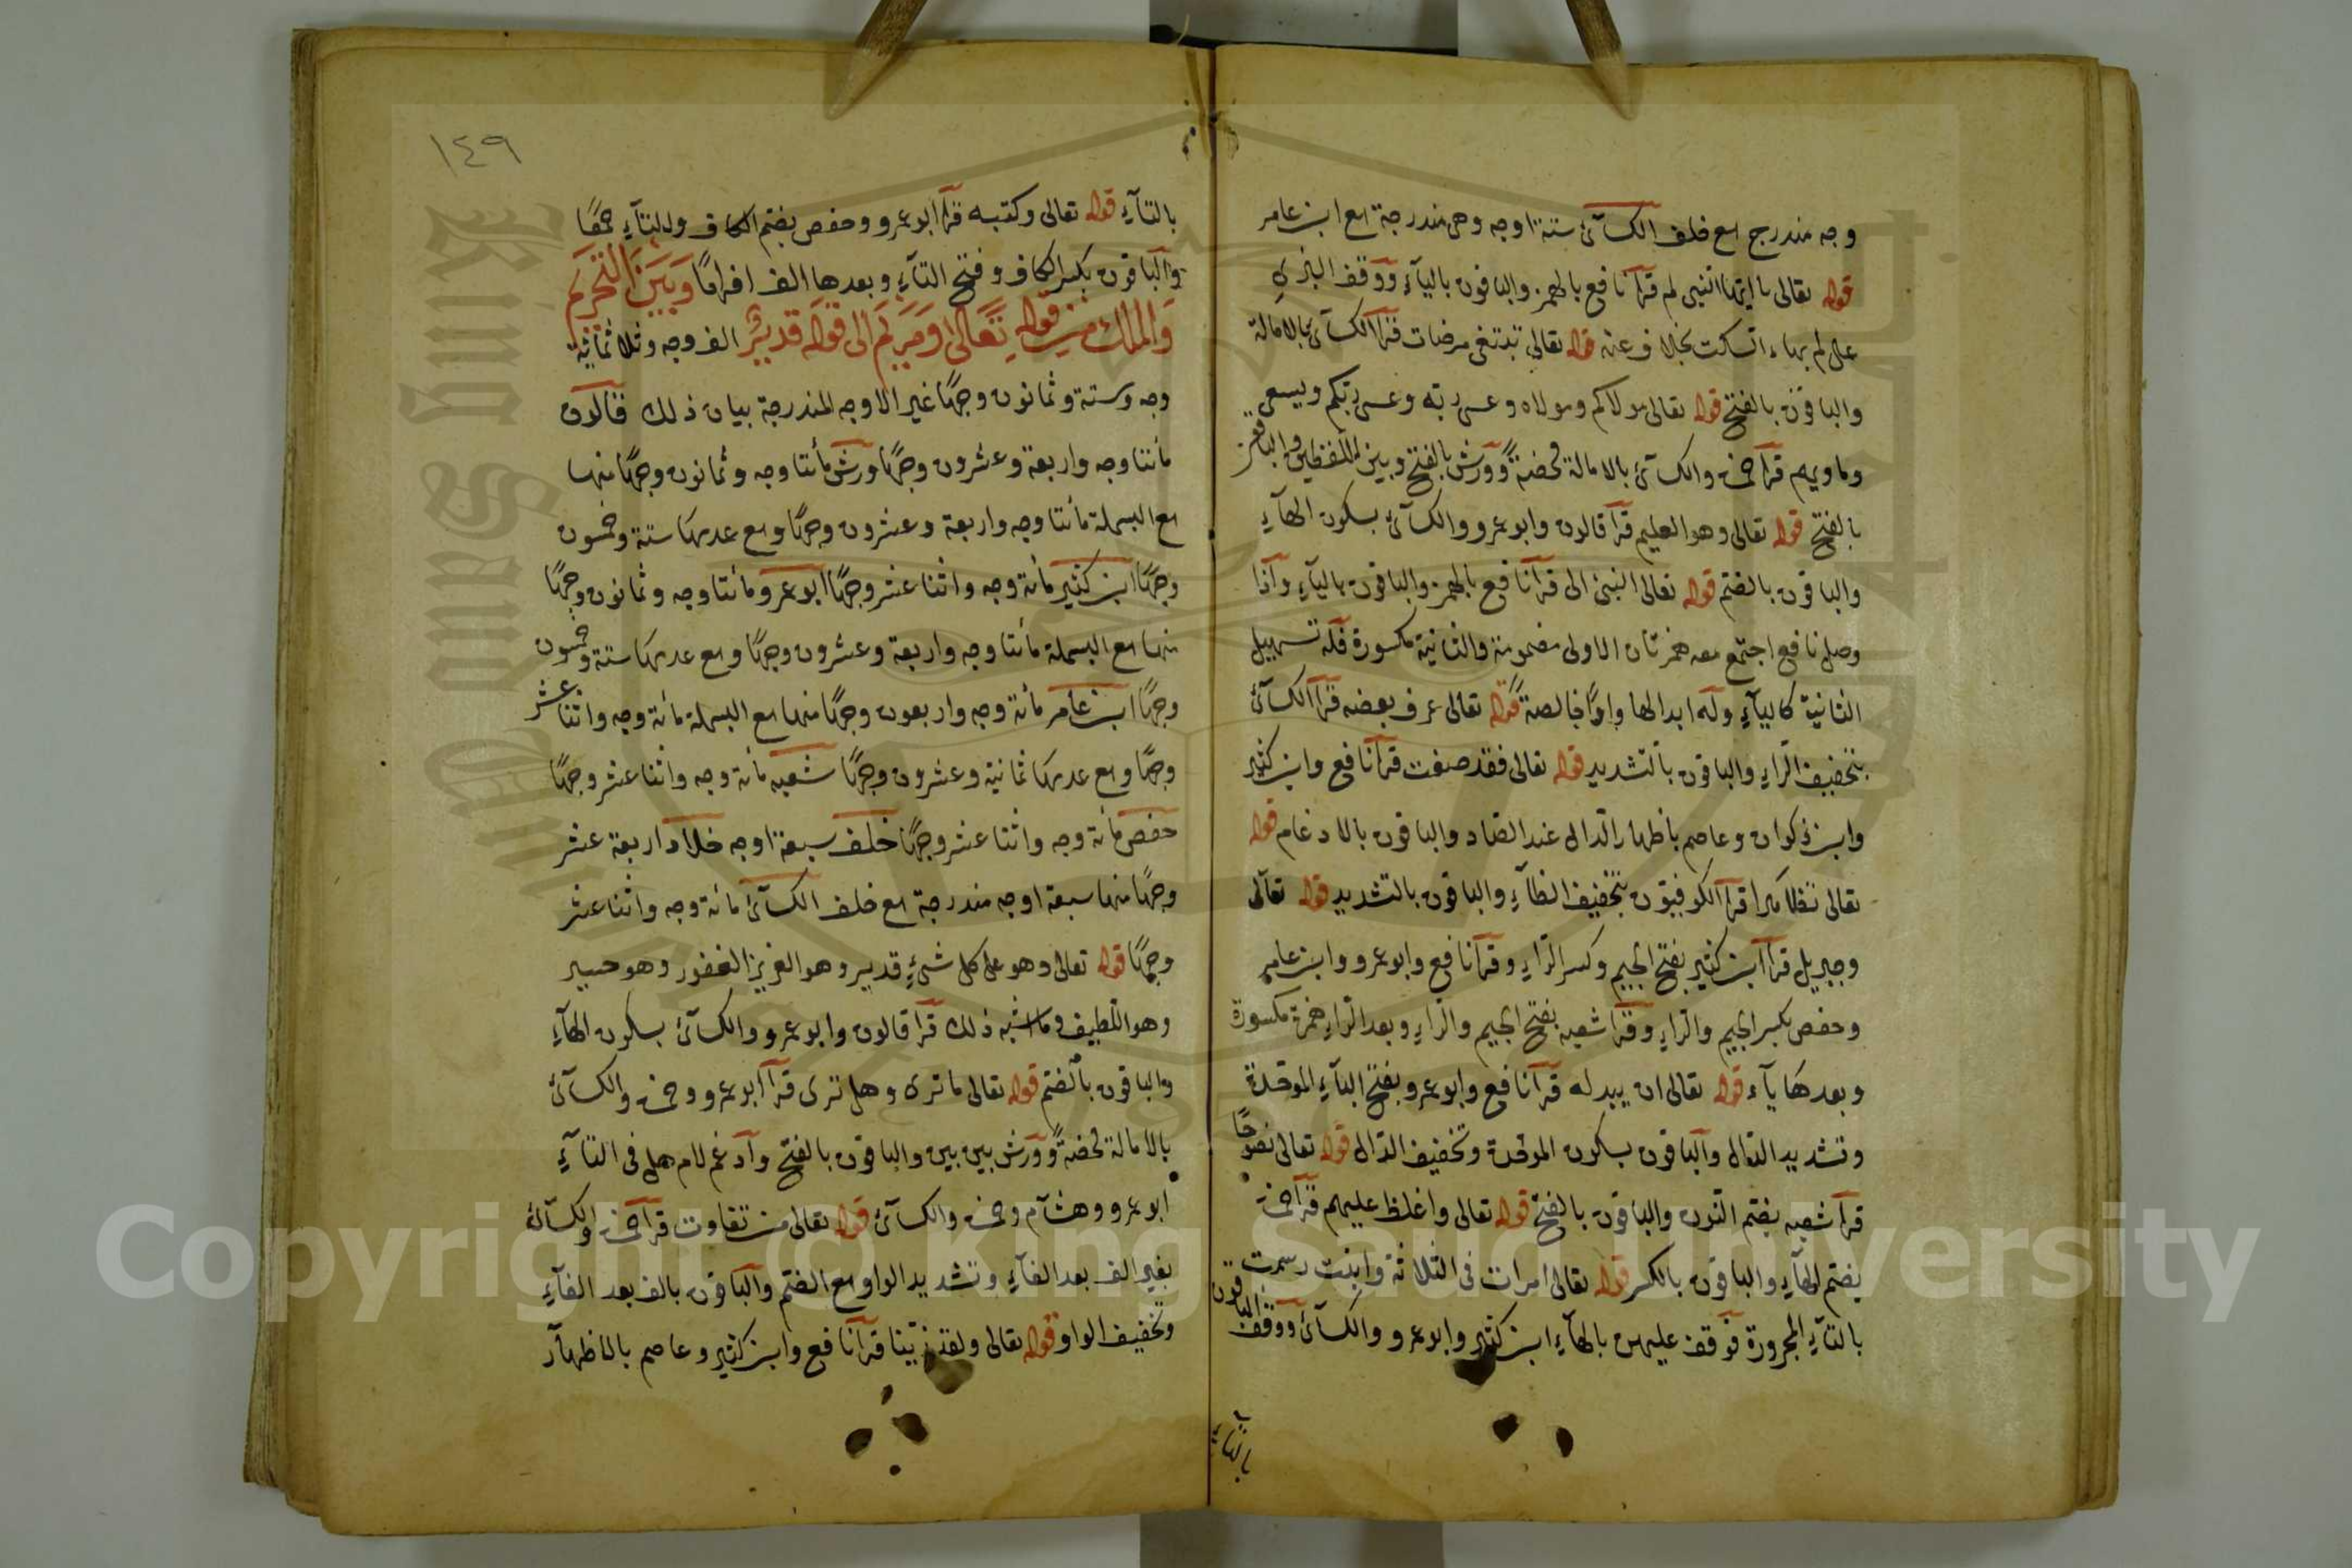 وجه مندرج مع خلف الكسآئ ستة اوجه وهى مندرجة مع ابن عامر
قوله تعالى يا ايها النبى لم قرآ نافع بالهمز والباقون باليآء ووقف البزى
على لم بهاء السكت بخلاف عنه قوله تعالى تبتغى مرضات قرآ الكسآئ بالامالة
والباقون بالفتح قوله تعالى مولاكم ومولاه وعسى ربه وعسى ربكم ويسعى
وماويهم قرآ حمزة والكسآئ بالامالة محضة وورش بالفتح وبين اللفظين والباقون
بالفتح قوله تعالى وهو العليم قرآ قالون وابو عمرو والكسآئ بسكون الهآء
والباقون بالضم قوله تعالى النبئ الى قرآ نافع بالهمز والباقون باليآء واذا
وصل نافع اجتمع معه همزتان الاولى مضمومة والثانية مكسورة فله تسهيل
الثانية كاليآء وله ابدالها واوًا خالصة قوله تعالى عرف بعضه قرآ الكسآئ
بتخفيف الرآء والباقون بالتشديد قوله تعالى فقد صغت قرآ نافع وابن كثير
وابن ذكوان وعاصم باظهار الدال عند الصاد والباقون بالادغام قوله
تعالى تظاهرا قرآ الكوفيون بتخفيف الظآء والباقون بالتشديد قوله تعالى
وجبريل قرآ ابن كثير بفتح الجيم وكسر الرآء وقرآ نافع وابو عمرو وابن عامر
وحفص بكسر الجيم والرآء وقرآ شعبه بفتح الجيم والرآء وبعد الرآء همزة مكسورة
وبعدها يآء قوله تعالى ان يبدله قرآ نافع وابو عمرو بفتح البآء الموحدة
وتشديد الدال والباقون بسكون الموحدة وتخفيف الدال قوله تعالى نصوحًا
قرآ شعبه بضم النون والباقون بالفتح قوله تعالى واغلظ عليهم قرآ حمزة
بضم الهآء والباقون بالكسر قوله تعالى امرات فى الثلاثة وابنت رسمت
بالتآء المجرورة فوقف عليهن بالهآء ابن كثير وابو عمرو والكسآئ ووقف الباقون
بالتآء
١٤٩
بالتآء قوله تعالى وكتبه قرآ ابو عمرو وحفص بضم الكاف والتآء جمعًا
والباقون بكسر الكاف وفتح التآء وبعدها الف افرادًا وبين التحريم
والملك من قوله تعالى ومريم الى قوله قدير الف وجه وثلاثمائة
وجه وستة وثمانون وجهًا غير الاوجه المندرجة بيان ذلك قالون
مائتا وجه واربعة وعشرون وجهًا ورش مائتا وجه وثمانون وجهًا منها
مع البسملة مائتا وجه واربعة وعشرون وجهًا ومع عدمها ستة وخمسون
وجهًا ابن كثير مائة وجه واثنا عشر وجهًا ابو عمرو مائتا وجه وثمانون وجهًا
منها مع البسملة مائتا وجه واربعة وعشرون وجهًا ومع عدمها ستة وخمسون
وجهًا ابن عامر مائة وجه واربعون وجهًا منها مع البسملة مائة وجه واثنا عشر
وجهًا ومع عدمها ثمانية وعشرون وجهًا شعبه مائة وجه واثنا عشر وجهًا
حفص مائة وجه واثنا عشر وجهًا خلف سبعة اوجه خلاد اربعة عشر
وجهًا منها سبعة اوجه مندرجة مع خلف الكسآئ مائة وجه واثنا عشر
وجهًا قوله تعالى وهو على كل شئ قدير وهو العزيز الغفور وهو حسير
وهو اللطيف وما اشبه ذلك قرآ قالون وابو عمرو والكسآئ بسكون الهآء
والباقون بالضم قوله تعالى ما ترى وهل ترى قرآ ابو عمرو وحمزة والكسآئ
بالامالة محضة وورش بين بين والباقون بالفتح وادغم لام هل فى التآء
ابو عمرو وهشآم وحمزة والكسآئ قوله تعالى من تفاوت قرآ حمزة والكسآئ
بغير الف بعد الفآء وتشديد الواو مع الضم والباقون بالف بعد الفآء
وتخفيف الواو قوله تعالى ولقد زينا قرآ نافع وابن كثير وعاصم بالاظهآر
Copyright © King Saud University
King Saud University